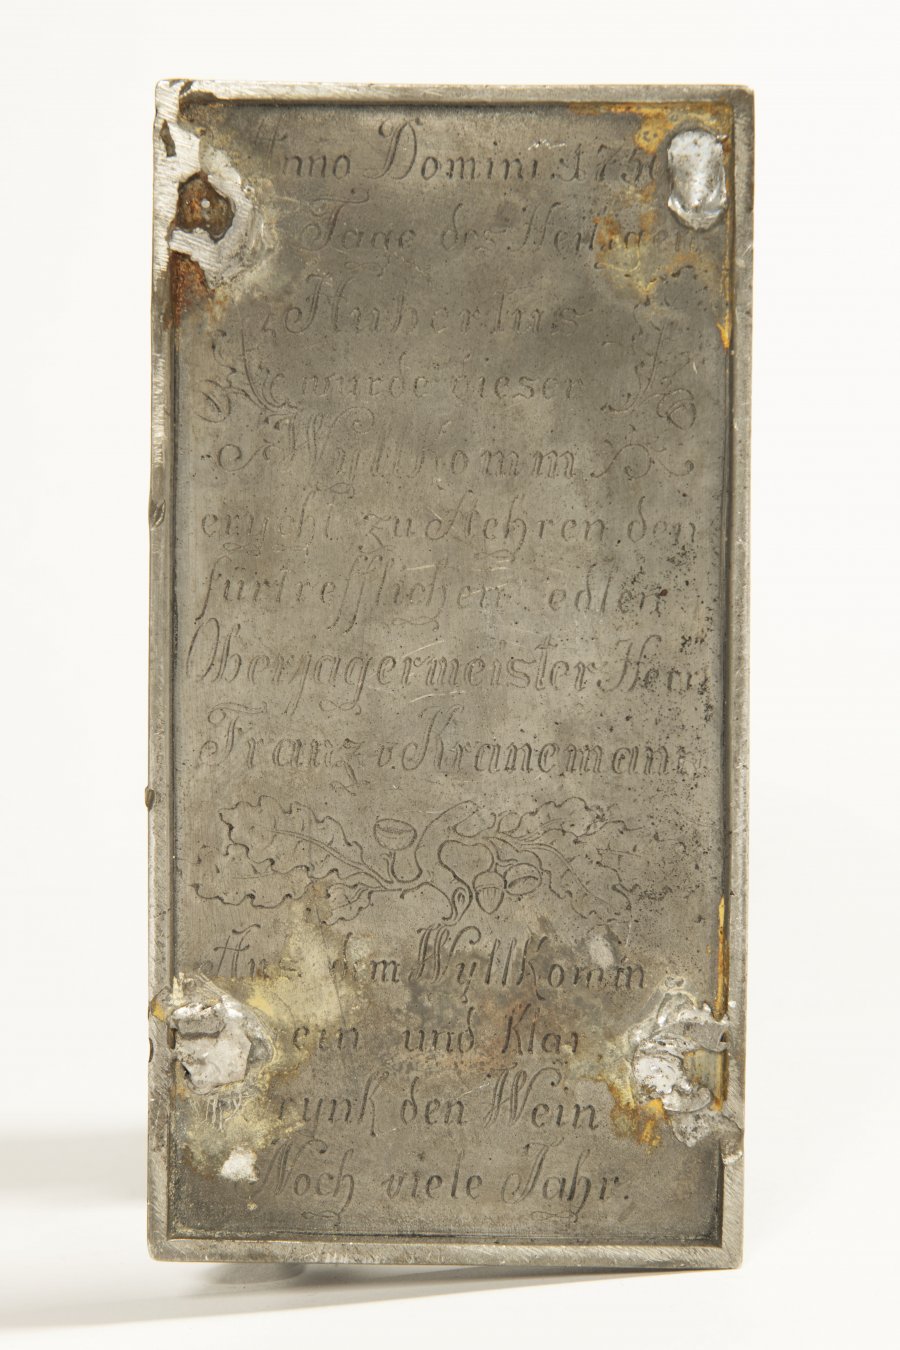 Anno Domini 175
Tage des Heiligen
Hubertus
wurde dieser
Wyllkomm
erycht zu Aehren den
fürtrefflichen edlen
Oberjagermeister Herr
Franz v. Kranemann
Aus dem Wyllkomm
ein und Klar
rynk den Wein
Noch viele Jahr.